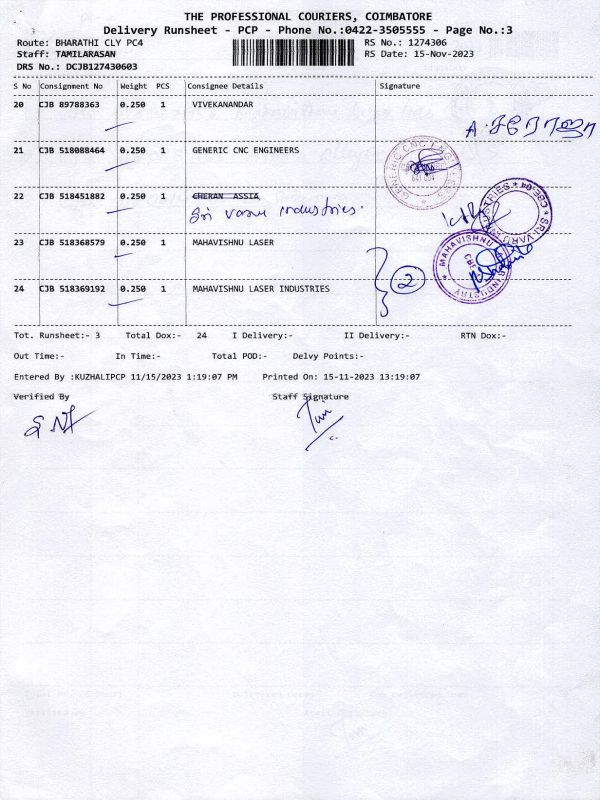 THE PROFESSIONAL COURIERS, COIMBATORE
Delivery Runsheet - PCP - Phone No.:0422-3505555 - Page No.:3
Route: BHARATHI CLY PC4 RS No.: 1274306
Staff: TAMILARASAN RS Date: 15-Nov-2023
DRS No.: DCJB127430603
S No Consignment No Weight PCS Consignee Details Signature
20 CJB 89788363 0.250 1 VIVEKANANDAR
21 CJB 518088464 0.250 1 GENERIC CNC ENGINEERS
GENERIC CNC ENGINEERS
22 CJB 518451882 0.250 1 CHERAN ASSIA,
industries.
23 CJB 518368579 0.250 1 MAHAVISHNU LASER
MAHAVISHNU
2
24 CJB 518369192 0.250 1 MAHAVISHNU LASER INDUSTRIES
Tot. Runsheet:- 3 Total Dox:- 24 I Delivery:- II Delivery:- RTN Dox:-
Out Time:- In Time:- Total POD:- Delvy Points:-
Entered By :KUZHALIPCP 11/15/2023 1:19:07 PM Printed On: 15-11-2023 13:19:07
Verified By Staff Signature